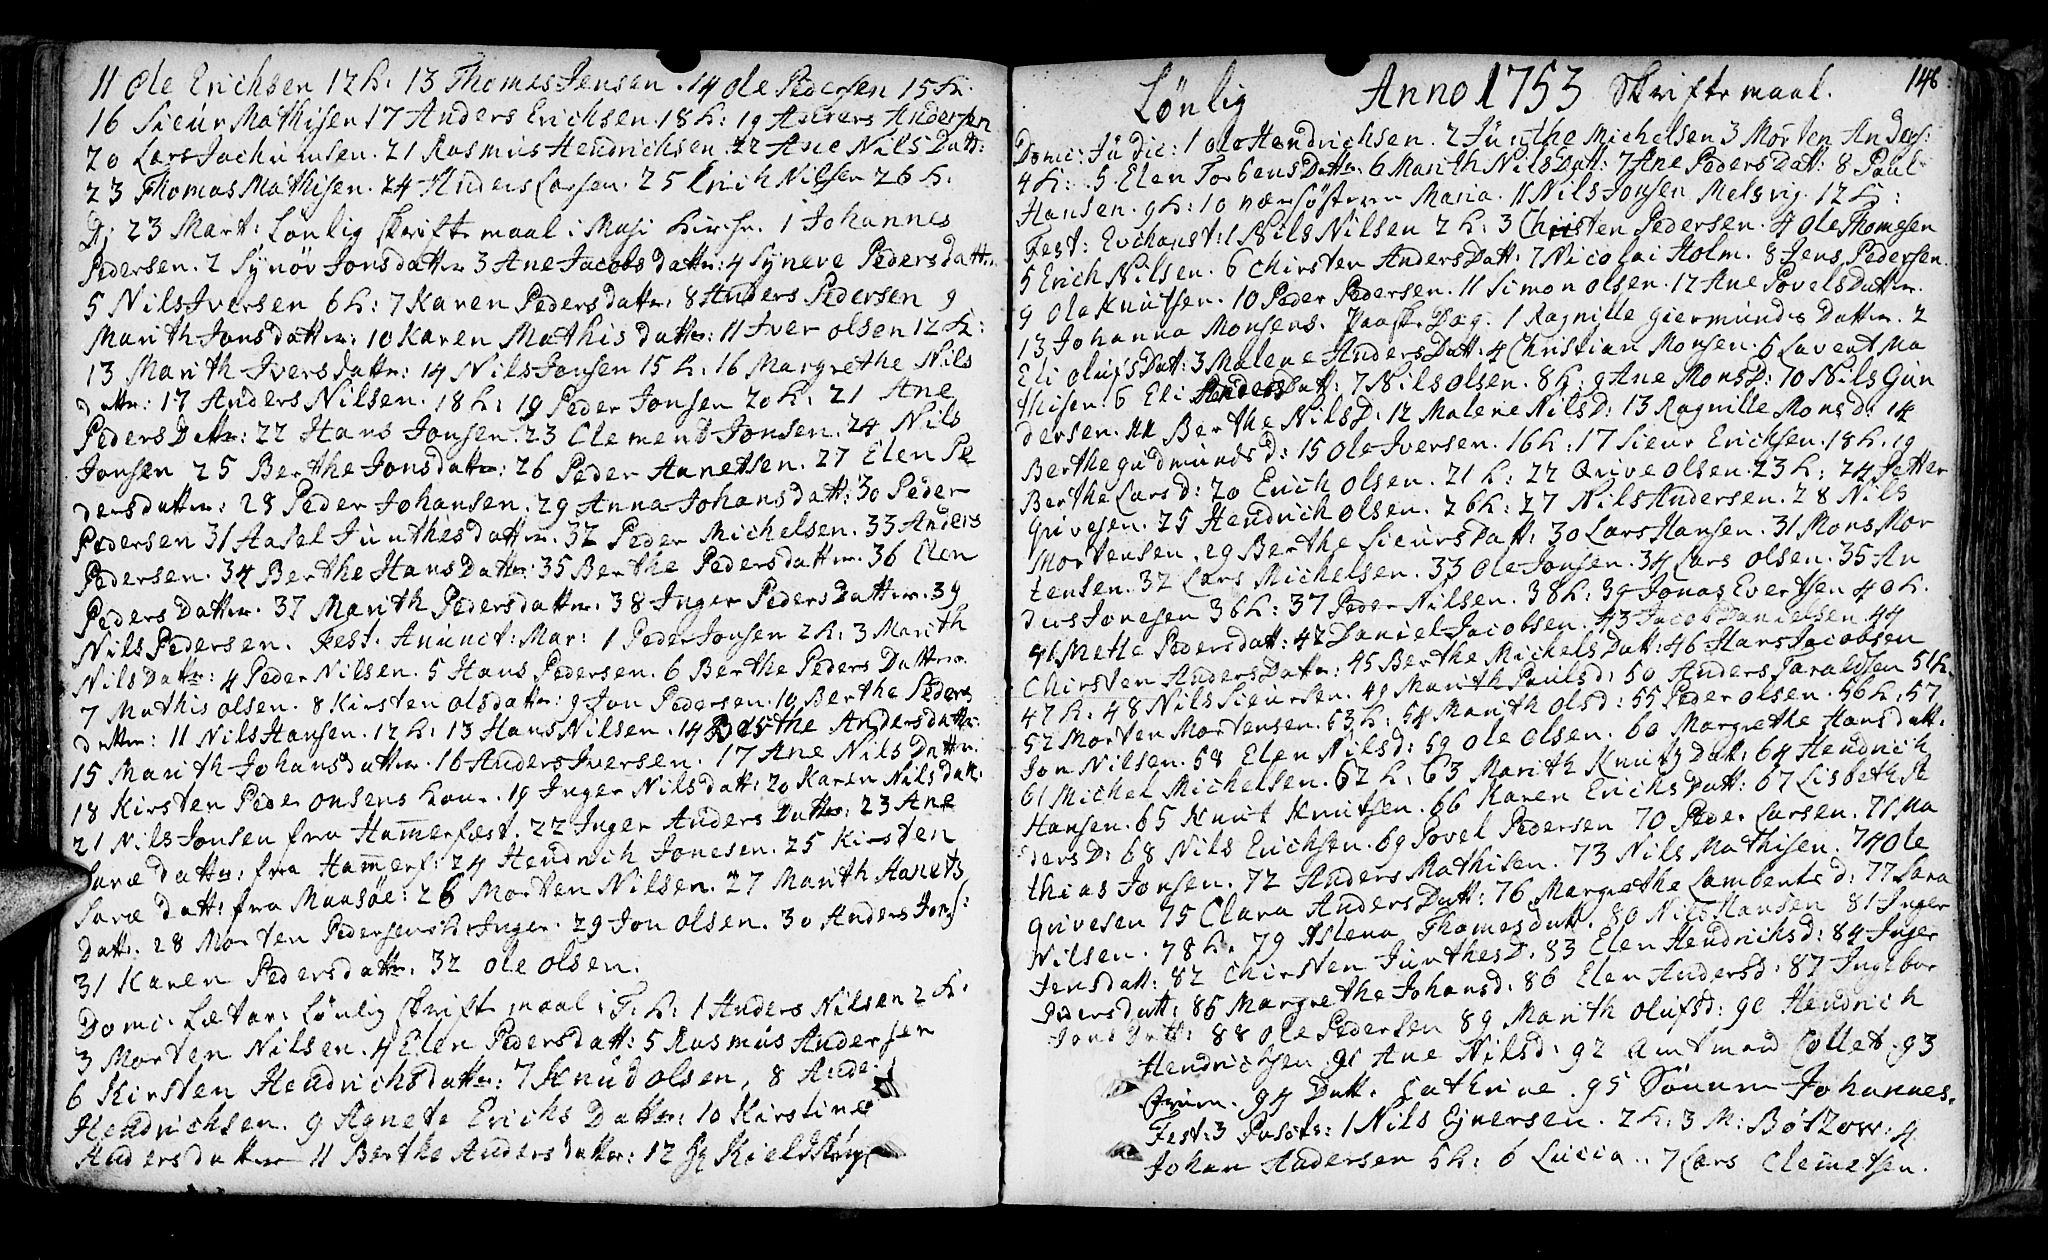 11 Ole Erichsen 12 h: 13 Thomes Jensen. 14 Ole Pedersen 15 h:
16 Sieur Mathisen 17 Anders Erichsen. 18 h: 19 Anders Andersen
20 Lars Jochumsen. 21 Rasmus Hendrichsen 22 Ane Nils Datt:
23 Thomas Mathisen. 24 Anders Larsen. 25 Erich Nilsen 26 h.
D: 23 Mart: Lönlig skrifte maal i Masi Kirche. 1 Johannes
Pedersen. 2 Synöv Jonsdattr 3 Ane Jacobs dattr: 4 Syneve Pedersdattr.
5 Nils Iversen 6 h: 7 Karen Pedersdattr: 8 Anders Pedersen 9
Marith Jonsdattr: 10 Karen Mathis dattr: 11 Iver olsen 12 h:
13 Marith Ivers dattr: 14 Nils Jonsen 15 h: 16 Margrethe Nils
dattr: 17 Anders Nilsen. 18 h: 19 Peder Jonsen 20 h: 21 Ane
Peders Dattr: 22 Hans Jonsen. 23 Clement Jonsen. 24 Nils
Jonsen 25 Berthe Jonsdattr: 26 Peder Aanetsen. 27 Elen Pe
dersdattr: 28 Peder Johansen. 29 Anna Johansdatt: 30 Peder
Pedersen 31 Aasel Junthesdattr. 32 Peder Michelsen. 33 Anders
Pedersen. 34 Berthe Hans Dattr: 35 Berthe Pedersdattr. 36 Elen
Peders Dattr. 37 Marith Pedersdattr. 38 Inger Peders Dattr. 39
Nils Pedersen. Fest: Anunct: Mar: 1 Peder Jonsen 2 h: 3 Marith
Nils Dattr: 4 Peder Nilsen. 5 Hans Pedersen. 6 Berthe Peders Dattr.
7 Mathis olsen. 8 Kirsten olsdattr: 9 Jon Pedersen. 10 Berthe Peders
dattr: 11 Nils Hansen. 12 h: 13 Hans Nilsen. 14 Berthe Andersdattr:
15 Marith Johansdattr. 16 Anders Iversen. 17 Ane Nils Dattr.
18 Kirsten Peder onsens kone. 19 Inger Nilsdatt: 20 Karen Nilsdatt:
21 Nils Jonsen fra Hamerfest. 22 Inger Anders Dattr: 23 Ane
Saræ dattr: fra Hamerf: 24 Hendrich Jonesen. 25 Kirsten
Saræ datt: fra Maasöe: 26 Morten Nilsen. 27 Marith Aanets
Datt. 28 Morten Pedersens h: Inger. 29 Jon olsen. 30 Anders Jons:
31 Karen Pedersdattr. 32 ole olsen.
Domi. Lætar: Lönlig skrifte maal i T. K: 1 Anders Nilsen 2 h:
3 Morten Nilsen. 4 Elen Pedersdatt: 5 Rasmus Andersen
6 Kirsten Hendrichsdattr: 7 Knud olsen, 8 Ande
Hendrichsen. 9 Agnete Erichs Dattr: 10 Kirstine
Andersdattr 11 Berthe Andersdattr: 12 Kield
Lönlig Anno 1753 Skrifte maal. 148
Domi: Judic: 1 ole Hendrichsen. 2 Junthe Michelsen 3 Morten Anders:
4 h: 5 Elen Torbens Dattr: 6 Marith Nils Datt: 7 Ane Peders Datt: 8 Paul
Hansen. 9 h: 10 nær söstren Maria. 11 Nils Jonsen Melsvig. 12 h:
Fest: Evchanst: 1 Nils Nilsen 2 h: 3 Christen Pedersen. 4 ole Thomesen
5 Erich Nilsen. 6 Chirsten Anders Datt: 7 Nicolai Holm. 8 Jens Pedersen.
9 ole Knutsen. 10 Peder Pedersen. 11 Simon olsen. 12 Ane Povels Dattr.
13 Johanna Monsens. Paaske Dag. 1 Ragnille Giermunds Dattr. 2
Eli olufs Datt: 3 Malene Anders Datt: 4 Christian Monsen. 5 Lavent Ma
thisen. 6 Eli Anders Datt: 7 Nils olsen. 8 h: 9 Ane Mons D: 10 Nils Gun
dersen. 11 Berthe Nils D: 12 Malene Nils D: 13 Ragnille Mons d: 14
Berthe Gudmunds d: 15 Ole Iversen. 16 h: 17 Sieur Erichsen. 18 h. 19
Berthe Lars d: 20 Erich olsen. 21 h: 22 Qvive olsen. 23 h: 24 Petter
Qvivesen. 25 Hendrich olsen. 26 h: 27 Nils Andersen. 28 Nils
Mortensen. 29 Berthe Sieurs Datt: 30 Lars Hansen. 31 Mons Mor
tensen. 32 Lars Michelsen. 33 Ole Jonsen. 34 Lars olsen. 35 An
ders Jonesen 36 h: 37 Peder Nilsen. 38 h: 39 Jonas Evertsen 40 h.
41 Mette Pedersdatt: 42 Daniel Jacobsen. 43 Jacob Danielsen. 44
Chirsten Anders Dattr: 45 Berthe Michels Datt: 46 Hans Jacobsen
47 h: 48 Nils Sieursen. 49 Marith Paulsd: 50 Anders Taraldsen 51 h.
52 Morten Mortensen. 53 h: 54 Marith ols d: 55 Peder olsen. 56 h: 57
Jon Nilsen. 58 Elen Nilsd: 59 Ole Olsen. 60 Margrethe Hansdatt.
61 Michel Michelsen. 62 h: 63 Marith Knuts Datt: 64 Hendrich
Hansen. 65 Knut Knutsen. 66 Karen Erichs Datt: 67 Lisbeth Pe
ders D: 68 Nils Erichsen. 69 Povel Pedersen 70 Peder Larsen. 71 Ma
thias Jonsen. 72 Anders Mathisen. 73 Nils Mathisen. 74 Ole
Qvivesen 75 Clara Anders Datt: 76 Margrethe Lamberts d: 77 Sara
Nilsen. 78 h. 79 Aslena Thomesdatt. 80 Nils Hansen 81 Inger
Jensdatt: 82 Chirsten Junthes D: 83 Elen Hendrichsd: 84 Inger
Iversdatt: 85 Margrethe Johansd: 86 Elen Andersd: 87 Ingebor
Jons Datt: 88 ole Pedersen 89 Marith olufsd: 90 Hendrich
Hendrichsen 91 Ane Nilsd: 92 Amtmand Collet. 93
Fruen. 94 Datt. Cathrine. 95 Sönnen Johannes.
Fest: 3 Pascts: 1 Nils Ejversen. 2 h: 3 M: Bötzow: 4
Johan Andersen 5 h: 6 Lucia.. 7 Lars Clemetsen.